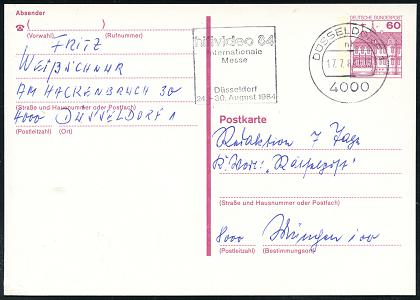 Absender
(                )
(Vorwahl) (Rufnummer)
FRITZ
WEIßSCHNUR
AM HACKENBRUCH 30
(Straße und Hausnummer oder Postfach)
4000 DÜSSELDORF 1
(Postleitzahl) (Ort)
hifivideo 84
Internationale
Messe
Düsseldorf
24.-30. August 1984
DÜSSELDORF
17.7.8
4000
DEUTSCHE BUNDESPOST
60
Postkarte
Redaktion 7 Tage
K.Wort: "Rätselpost"
(Straße und Hausnummer oder Postfach)
8000 München 100
(Postleitzahl) (Bestimmungsort)